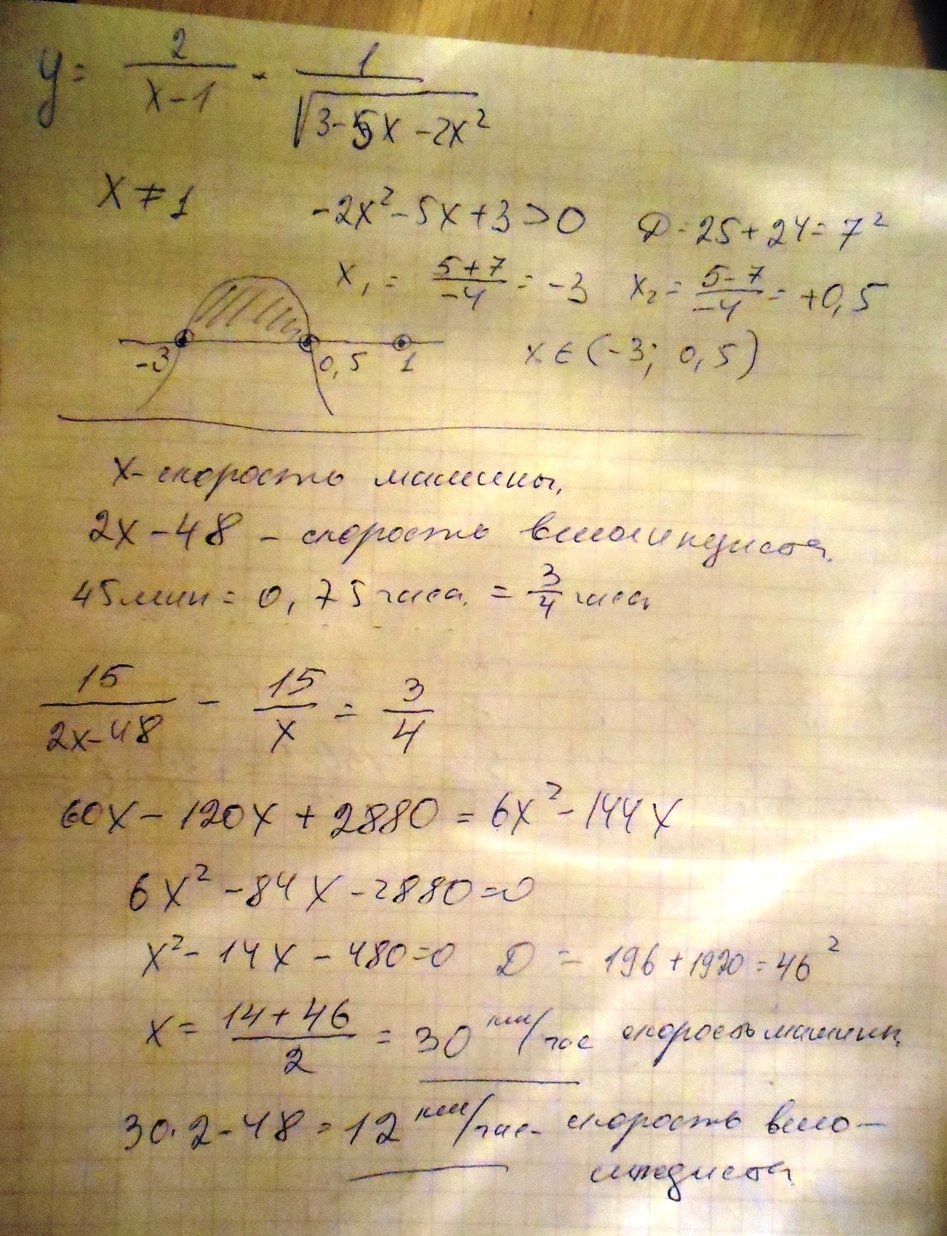 y = 2/(x-1) - 1/√(3-5x-2x²)
x ≠ 1 -2x²-5x+3>0 D=25+24=7²
x₁ = (5+7)/-4 = -3 x₂ = (5-7)/-4 = +0,5
-3 0,5 1 x∈(-3; 0,5)
x- скорость машины,
2x-48 - скорость велосипедиста.
45 мин = 0,75 часа. = 3/4 часа
15/(2x-48) - 15/x = 3/4
60x - 120x + 2880 = 6x² - 144x
6x² - 84x - 2880=0
x² - 14x - 480=0 D = 196+1920=46²
x = (14+46)/2 = 30 км/час скорость машины,
30·2-48=12 км/час- скорость вело-
сипедиста.